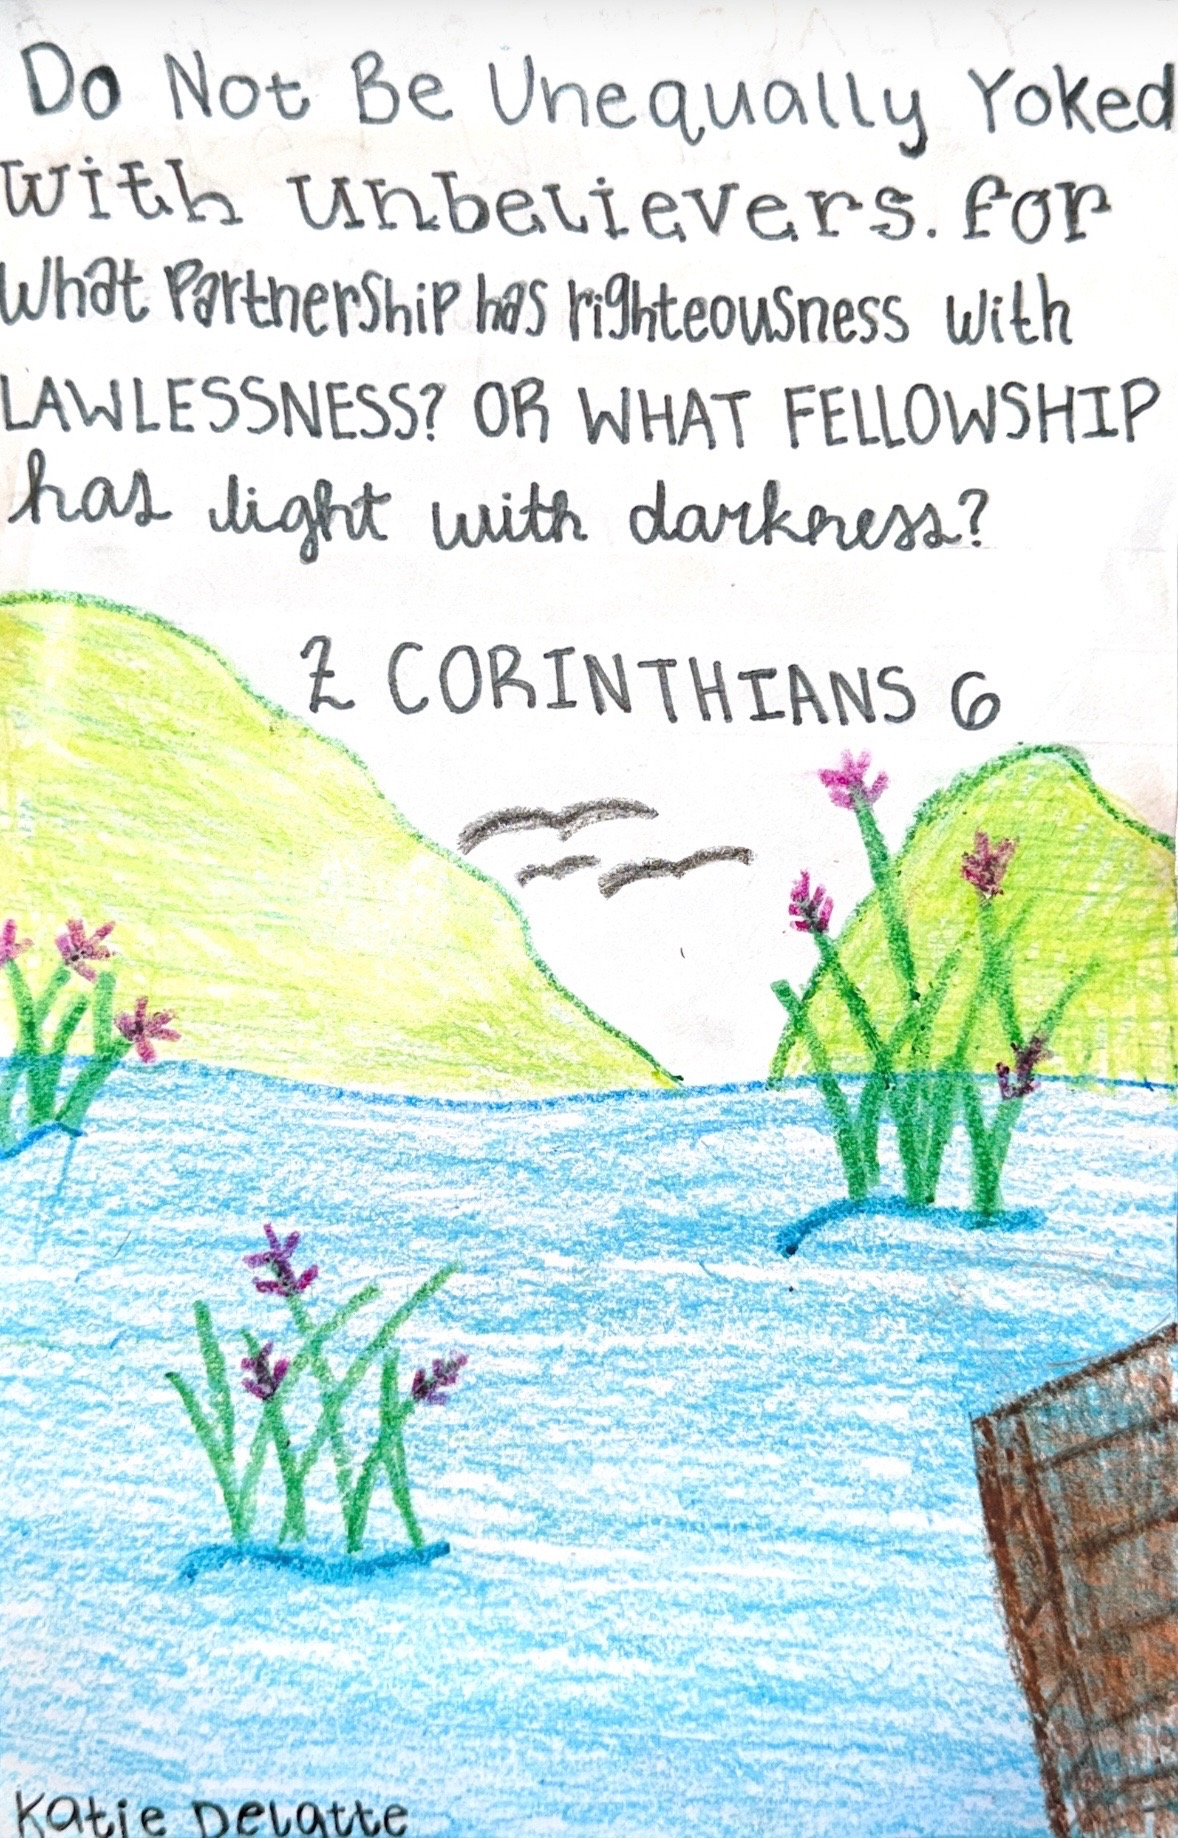 Do Not Be Unequally Yoked
with unbelievers. for
What Partnership has righteousness with
LAWLESSNESS? OR WHAT FELLOWSHIP
has light with darkness?
2 CORINTHIANS 6
Katie Delatte